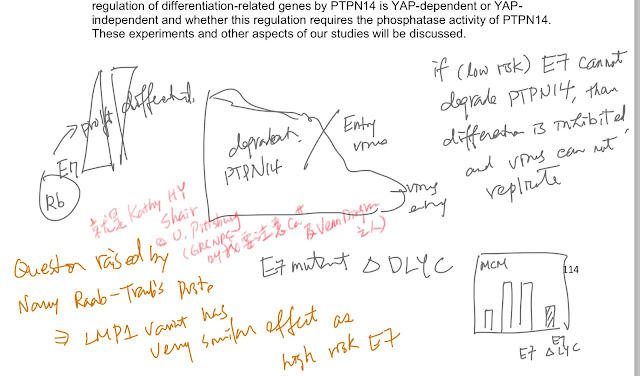 regulation of differentiation-related genes by PTPN14 is YAP-dependent or YAP-
independent and whether this regulation requires the phosphatase activity of PTPN14.
These experiments and other aspects of our studies will be discussed.
if (low risk) E7 cannot
degrade PTPN14, than
differention is inhibited
and virus can not
replicate
prolif
E7
Rb
degradant
PTPN14
Entry
virus
virus
entry
就是 Kathy HY
Shair
@ U. Pittsburg
Question raised by
Nancy Raab-Traub's
⇒ LMP1 variant has
very similar effect as
high risk E7
E7 mutant Δ DLYC
MCM
114
E7
E7 Δ LYC